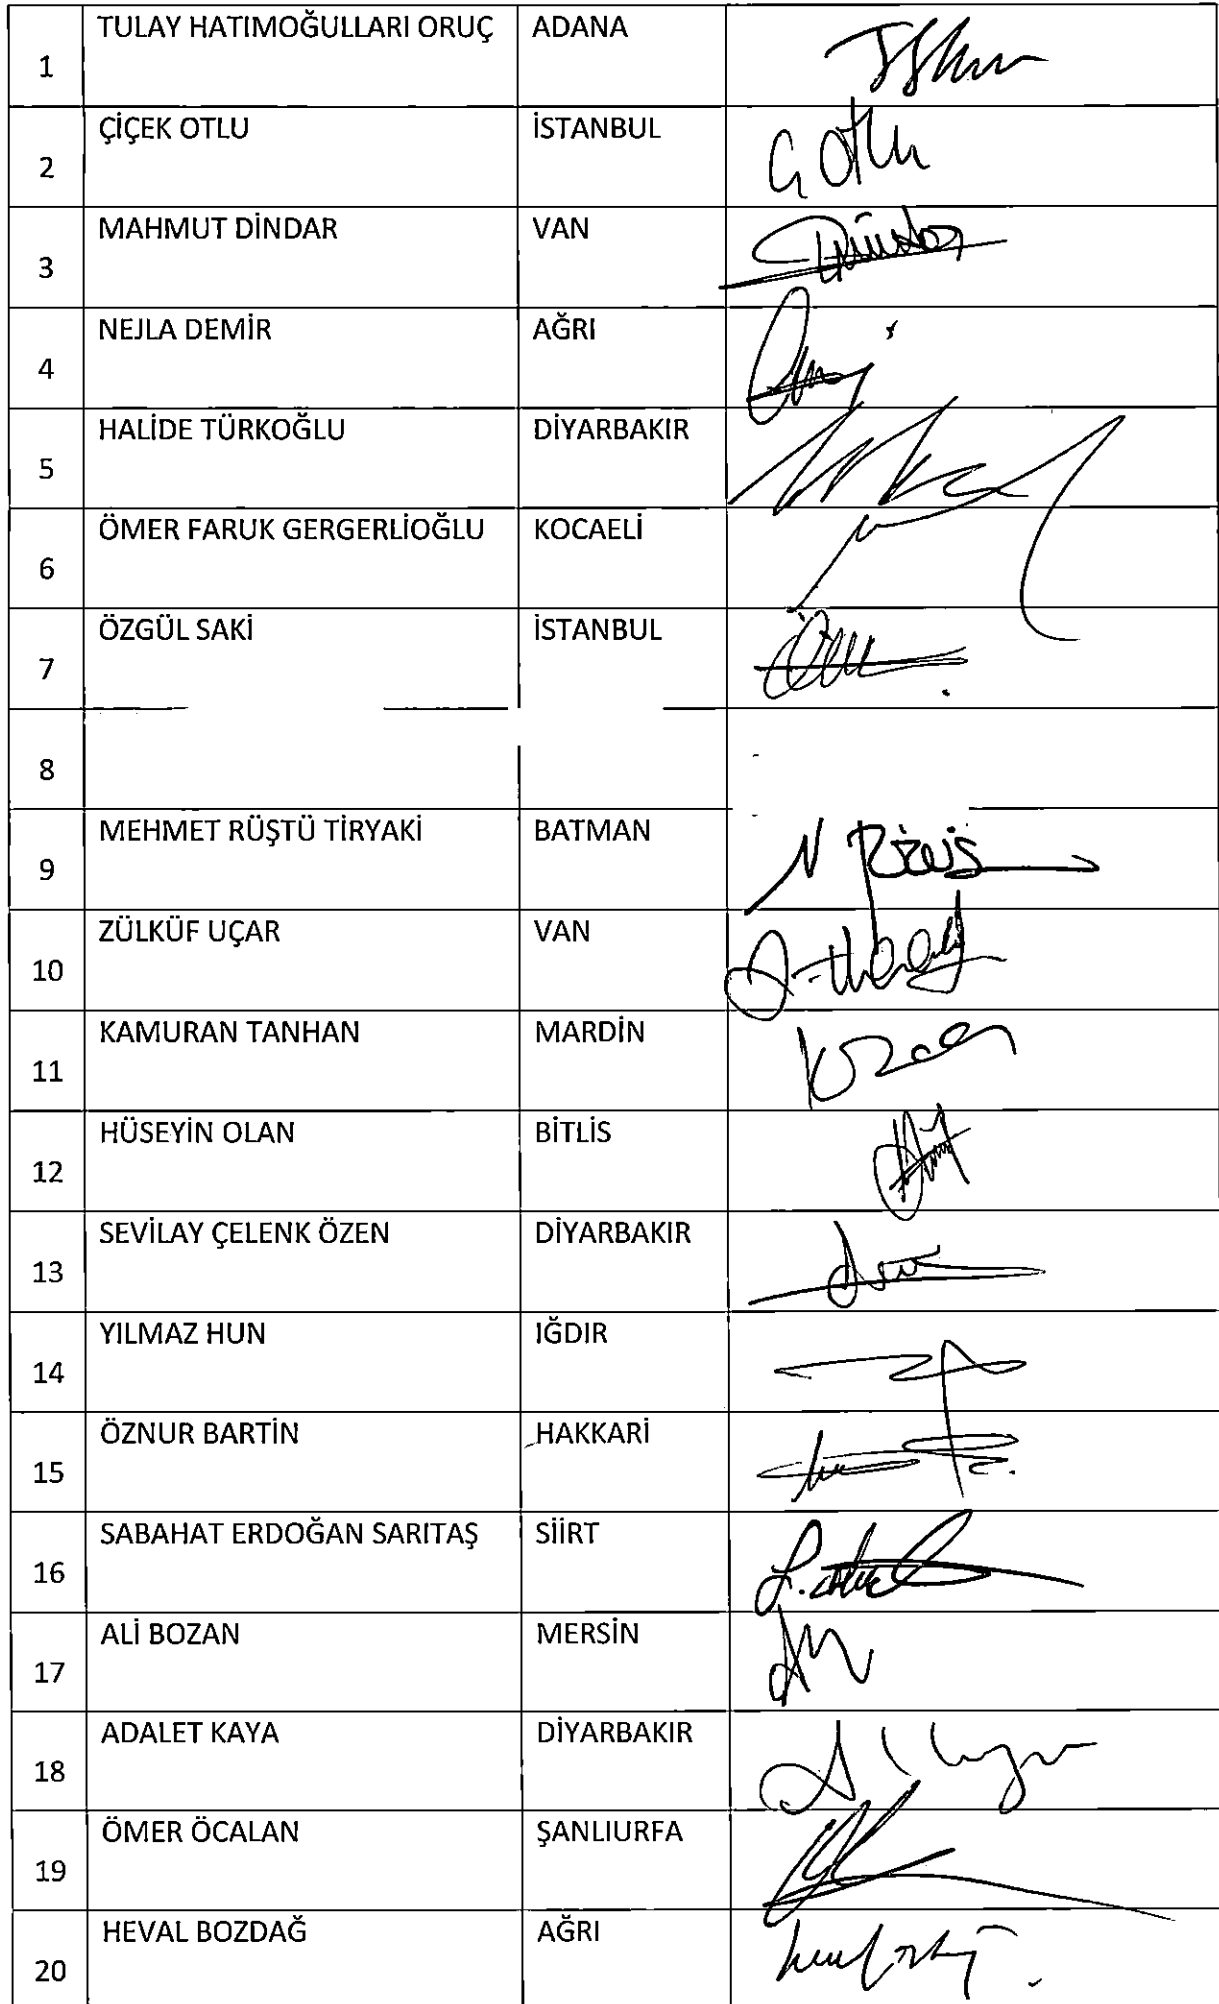 1 TULAY HATIMOĞULLARI ORUÇ ADANA
2 ÇİÇEK OTLU İSTANBUL
3 MAHMUT DİNDAR VAN
4 NEJLA DEMİR AĞRI
5 HALİDE TÜRKOĞLU DİYARBAKIR
6 ÖMER FARUK GERGERLİOĞLU KOCAELİ
7 ÖZGÜL SAKİ İSTANBUL
8
9 MEHMET RÜŞTÜ TİRYAKİ BATMAN
10 ZÜLKÜF UÇAR VAN
11 KAMURAN TANHAN MARDİN
12 HÜSEYİN OLAN BİTLİS
13 SEVİLAY ÇELENK ÖZEN DİYARBAKIR
14 YILMAZ HUN IĞDIR
15 ÖZNUR BARTİN HAKKARİ
16 SABAHAT ERDOĞAN SARITAŞ SİİRT
17 ALİ BOZAN MERSİN
18 ADALET KAYA DİYARBAKIR
19 ÖMER ÖCALAN ŞANLIURFA
20 HEVAL BOZDAĞ AĞRI